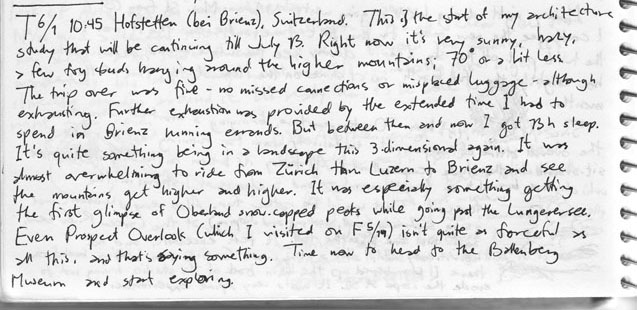 T 6/1 10:45 Hofstetten (bei Brienz), Switzerland. This is the start of my architecture
study that will be continuing till July 13. Right now it's very sunny, hazy,
a few foggy clouds hanging around the higher mountains; 70° or a bit less
The trip over was fine - no missed connections or misplaced luggage - although
exhausting. Further exhaustion was provided by the extended time I had to
spend in Brienz running errands. But between then and now I got 13 h sleep.
It's quite something being in a landscape this 3-dimensional again. It was
almost overwhelming to ride from Zürich thru Luzern to Brienz and see
the mountains get higher and higher. It was especially something getting
the first glimpse of Oberland snow-capped peaks while going past the Lungerersee.
Even Prospect Overlook (which I visited on F 5/) isn't quite as forceful as
all this, and that's saying something. Time now to head to the Ballenberg
Museum and start exploring.